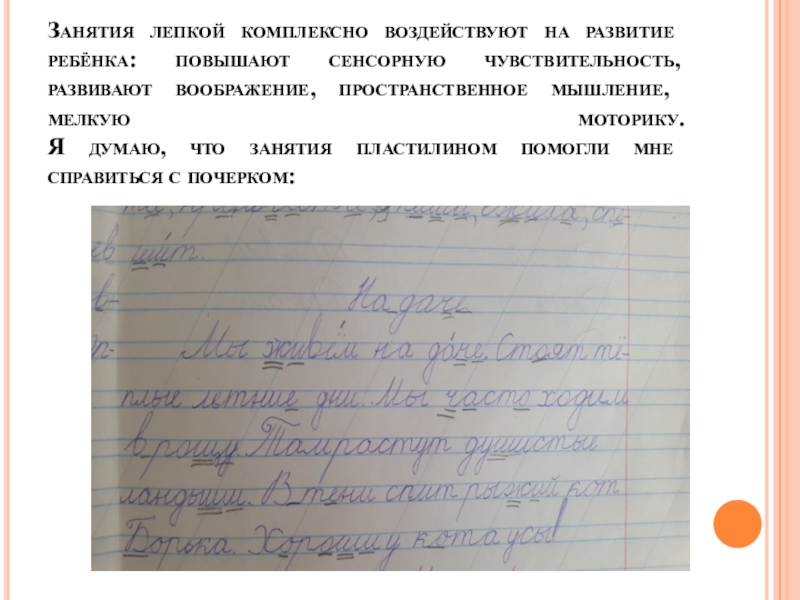 Занятия лепкой комплексно воздействуют на развитие
ребёнка: повышают сенсорную чувствительность,
развивают воображение, пространственное мышление,
мелкую моторику.
Я думаю, что занятия пластилином помогли мне
справиться с почерком:
ев шит.
в- На даче
Мы живём на даче. Стоят тё-
плые летние дни. Мы часто ходим
в рощу. Там растут душистые
ландыши. В тени спит рыжий кот
Борька. Хороши у кота усы!